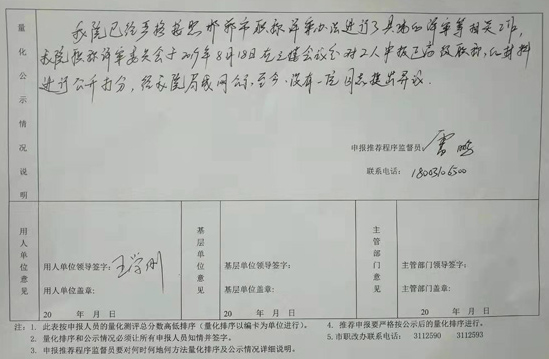 量化公示情况说明
我院已经严格按照邯郸市职称评审办法进行了具体的评审等相关工作,
我院职称评审委员会于2019年8月18日在三楼会议室对2人申报正高级职称,
进行公开打分,经我院局域网公示,至今没有一位同志提出异议。
申报推荐程序监督员
联系电话:
用人单位意见
用人单位领导签字:
用人单位盖章:
20 年 月 日
基层单位意见
基层单位领导签字:
基层单位盖章:
20 年 月 日
主管部门意见
主管部门领导签字:
主管部门盖章:
20 年 月 日
注: 1. 此表按申报人员的量化测评总分数高低排序(量化排序以编卡为单位进行)。
2. 量化排序和公示情况必须让所有申报人员知情并签字。
3. 申报推荐程序监督员要对何时何地何方法量化排序及公示情况详细说明。
4. 推荐申报要严格按公示后的量化排序进行。
5. 市职改办联系电话: 3112590 3112593